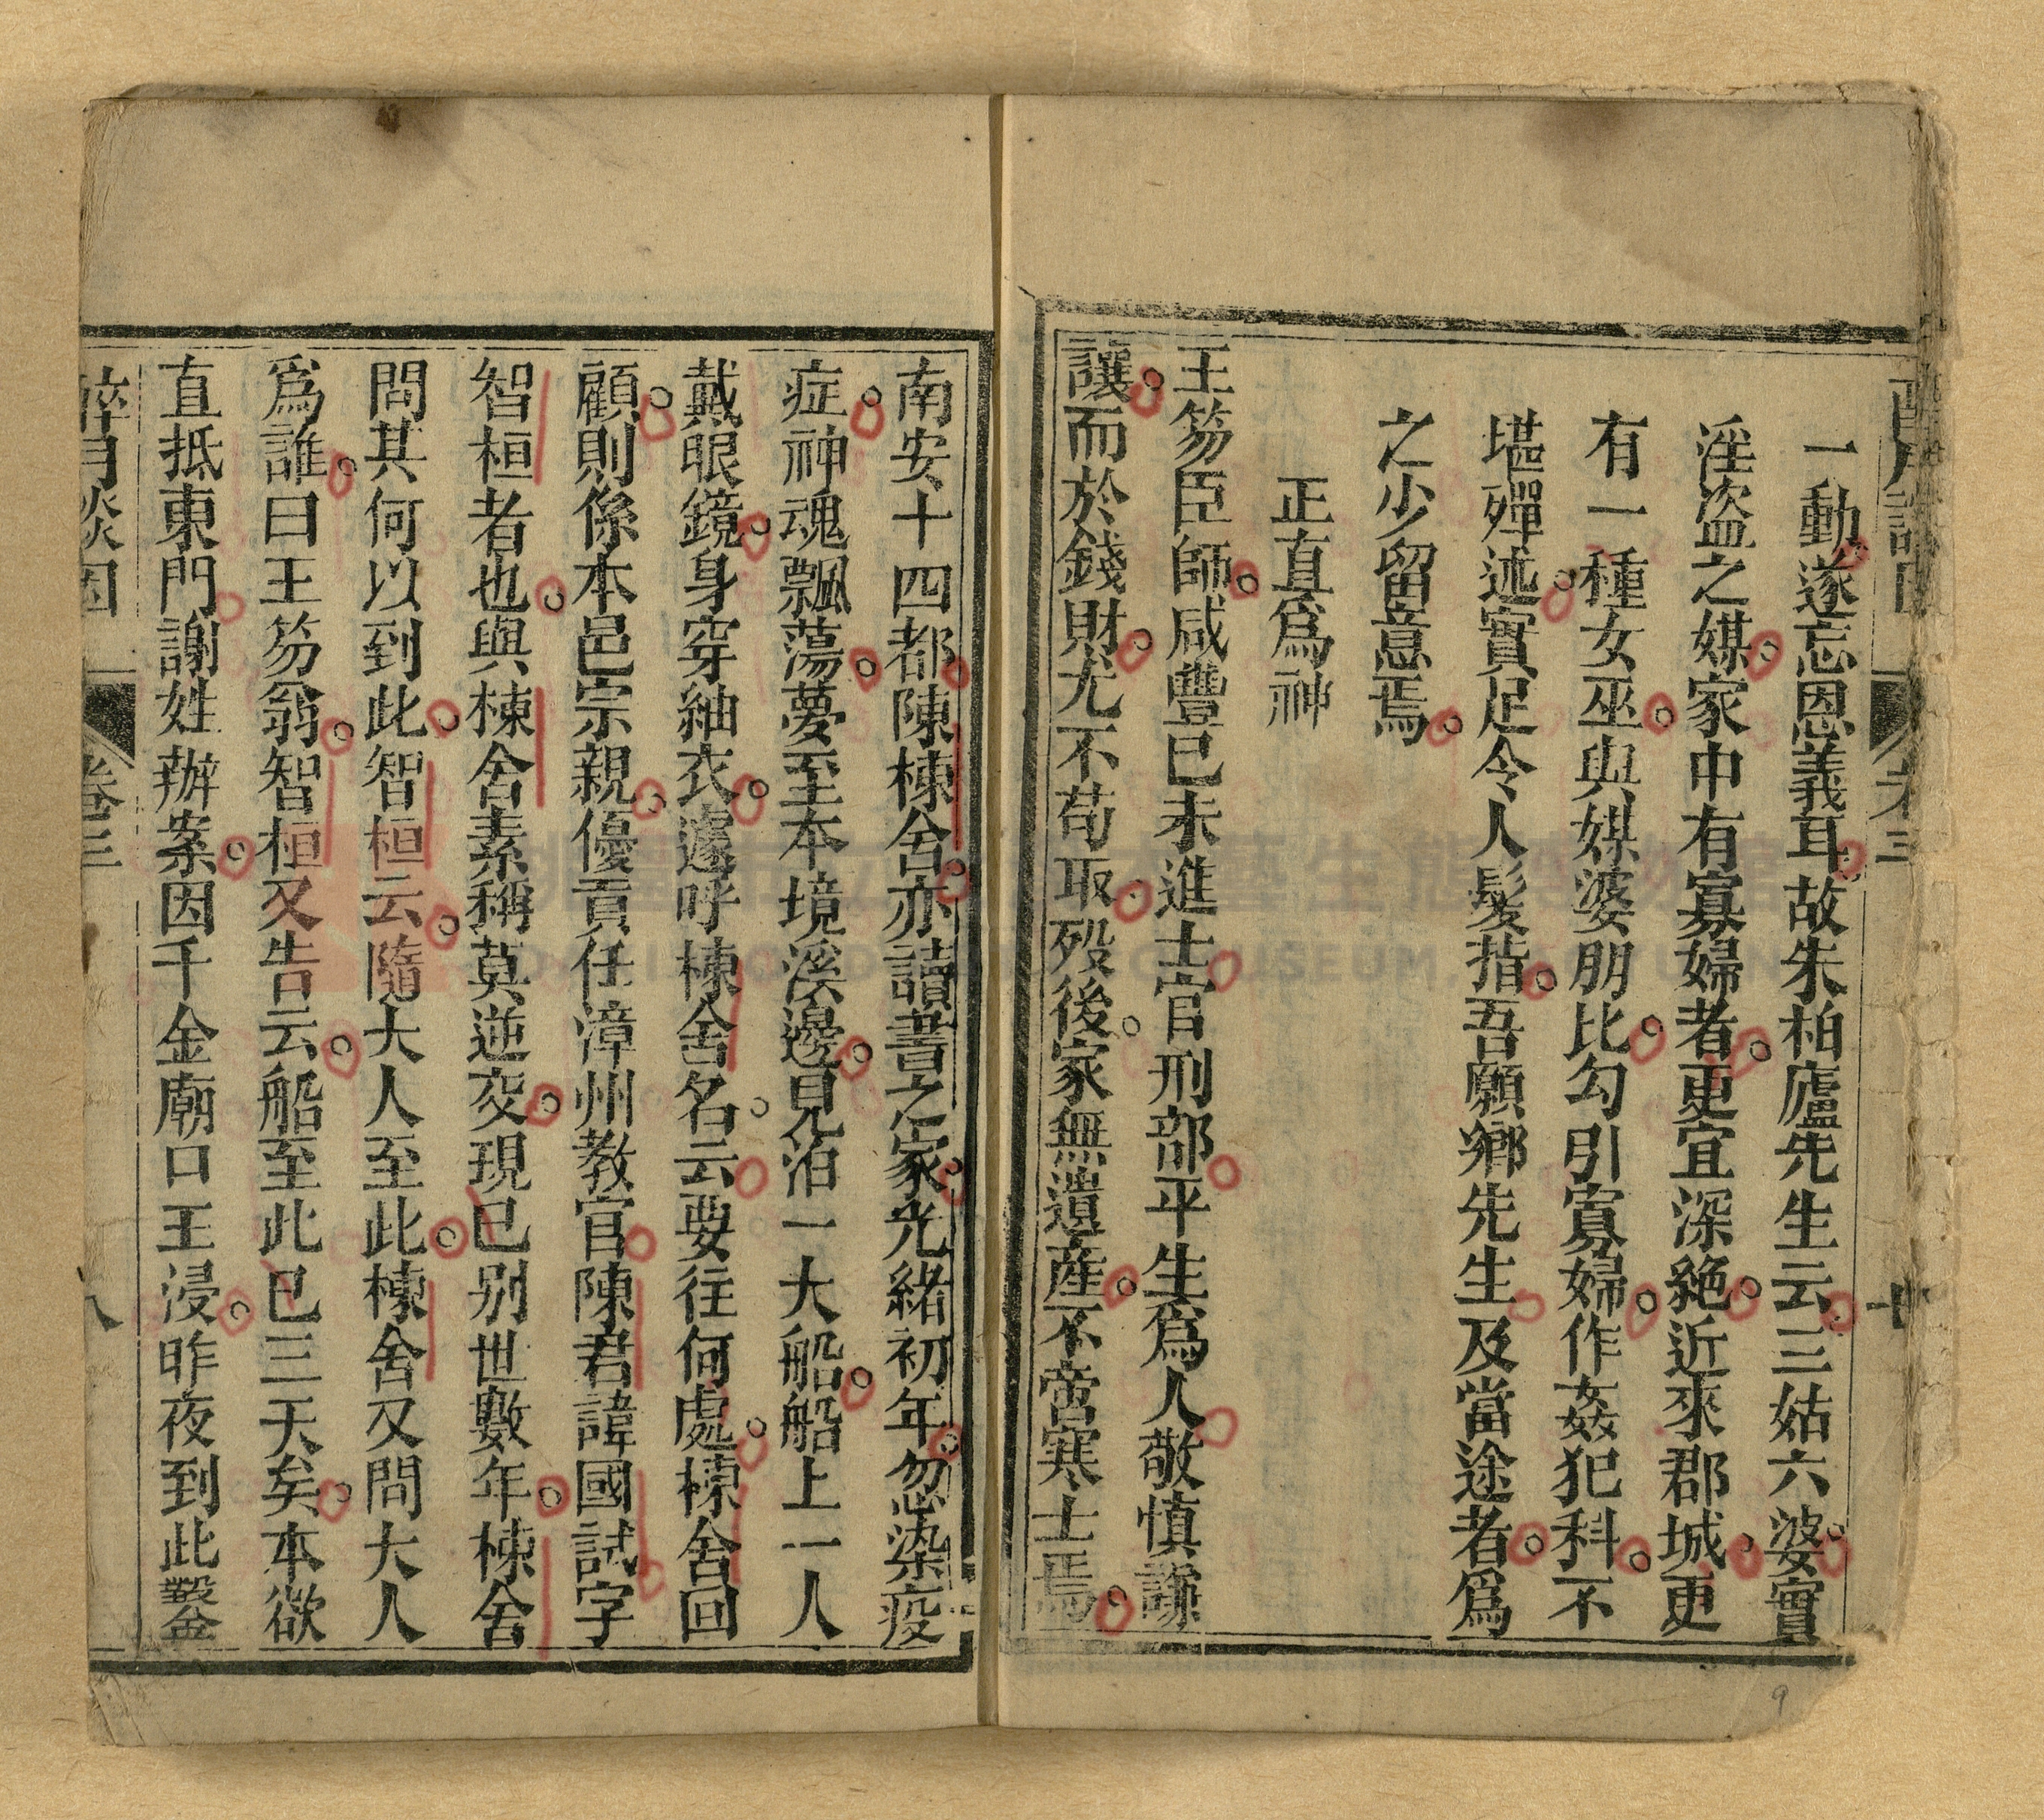 一動遂忘恩義耳故朱柏廬先生云三姑六婆實
淫盗之媒家中有寡婦者更宜深絶近來郡城更
有一種女巫與媒婆朋比勾引寡婦作姦犯科不
堪殫述實足令人髮指吾願鄉先生及當途者爲
之少留意焉
正直爲神
王笏臣師咸豐己未進士官刑部平生爲人敬慎謙
讓而於錢財尤不苟取殁後家無遺産不啻寒士焉
卷三
南安十四都陳棟舍亦讀書之家光緒初年忽染疫
症神魂飄蕩夢至本境溪邊見泊一大船船上一人
戴眼鏡身穿紬衣遽呼棟舍名云要往何處棟舍回
顧則係本邑宗親優貢任漳州教官陳君諱國試字
智桓者也與棟舍素稱莫逆交現已别世數年棟舍
問其何以到此智桓云隨大人至此棟舍又問大人
爲誰曰王笏翁智桓又告云船至此已三天矣本欲
直抵東門謝姓辦案因千金廟口王浸昨夜到此鑿
醉月談因
卷三
八